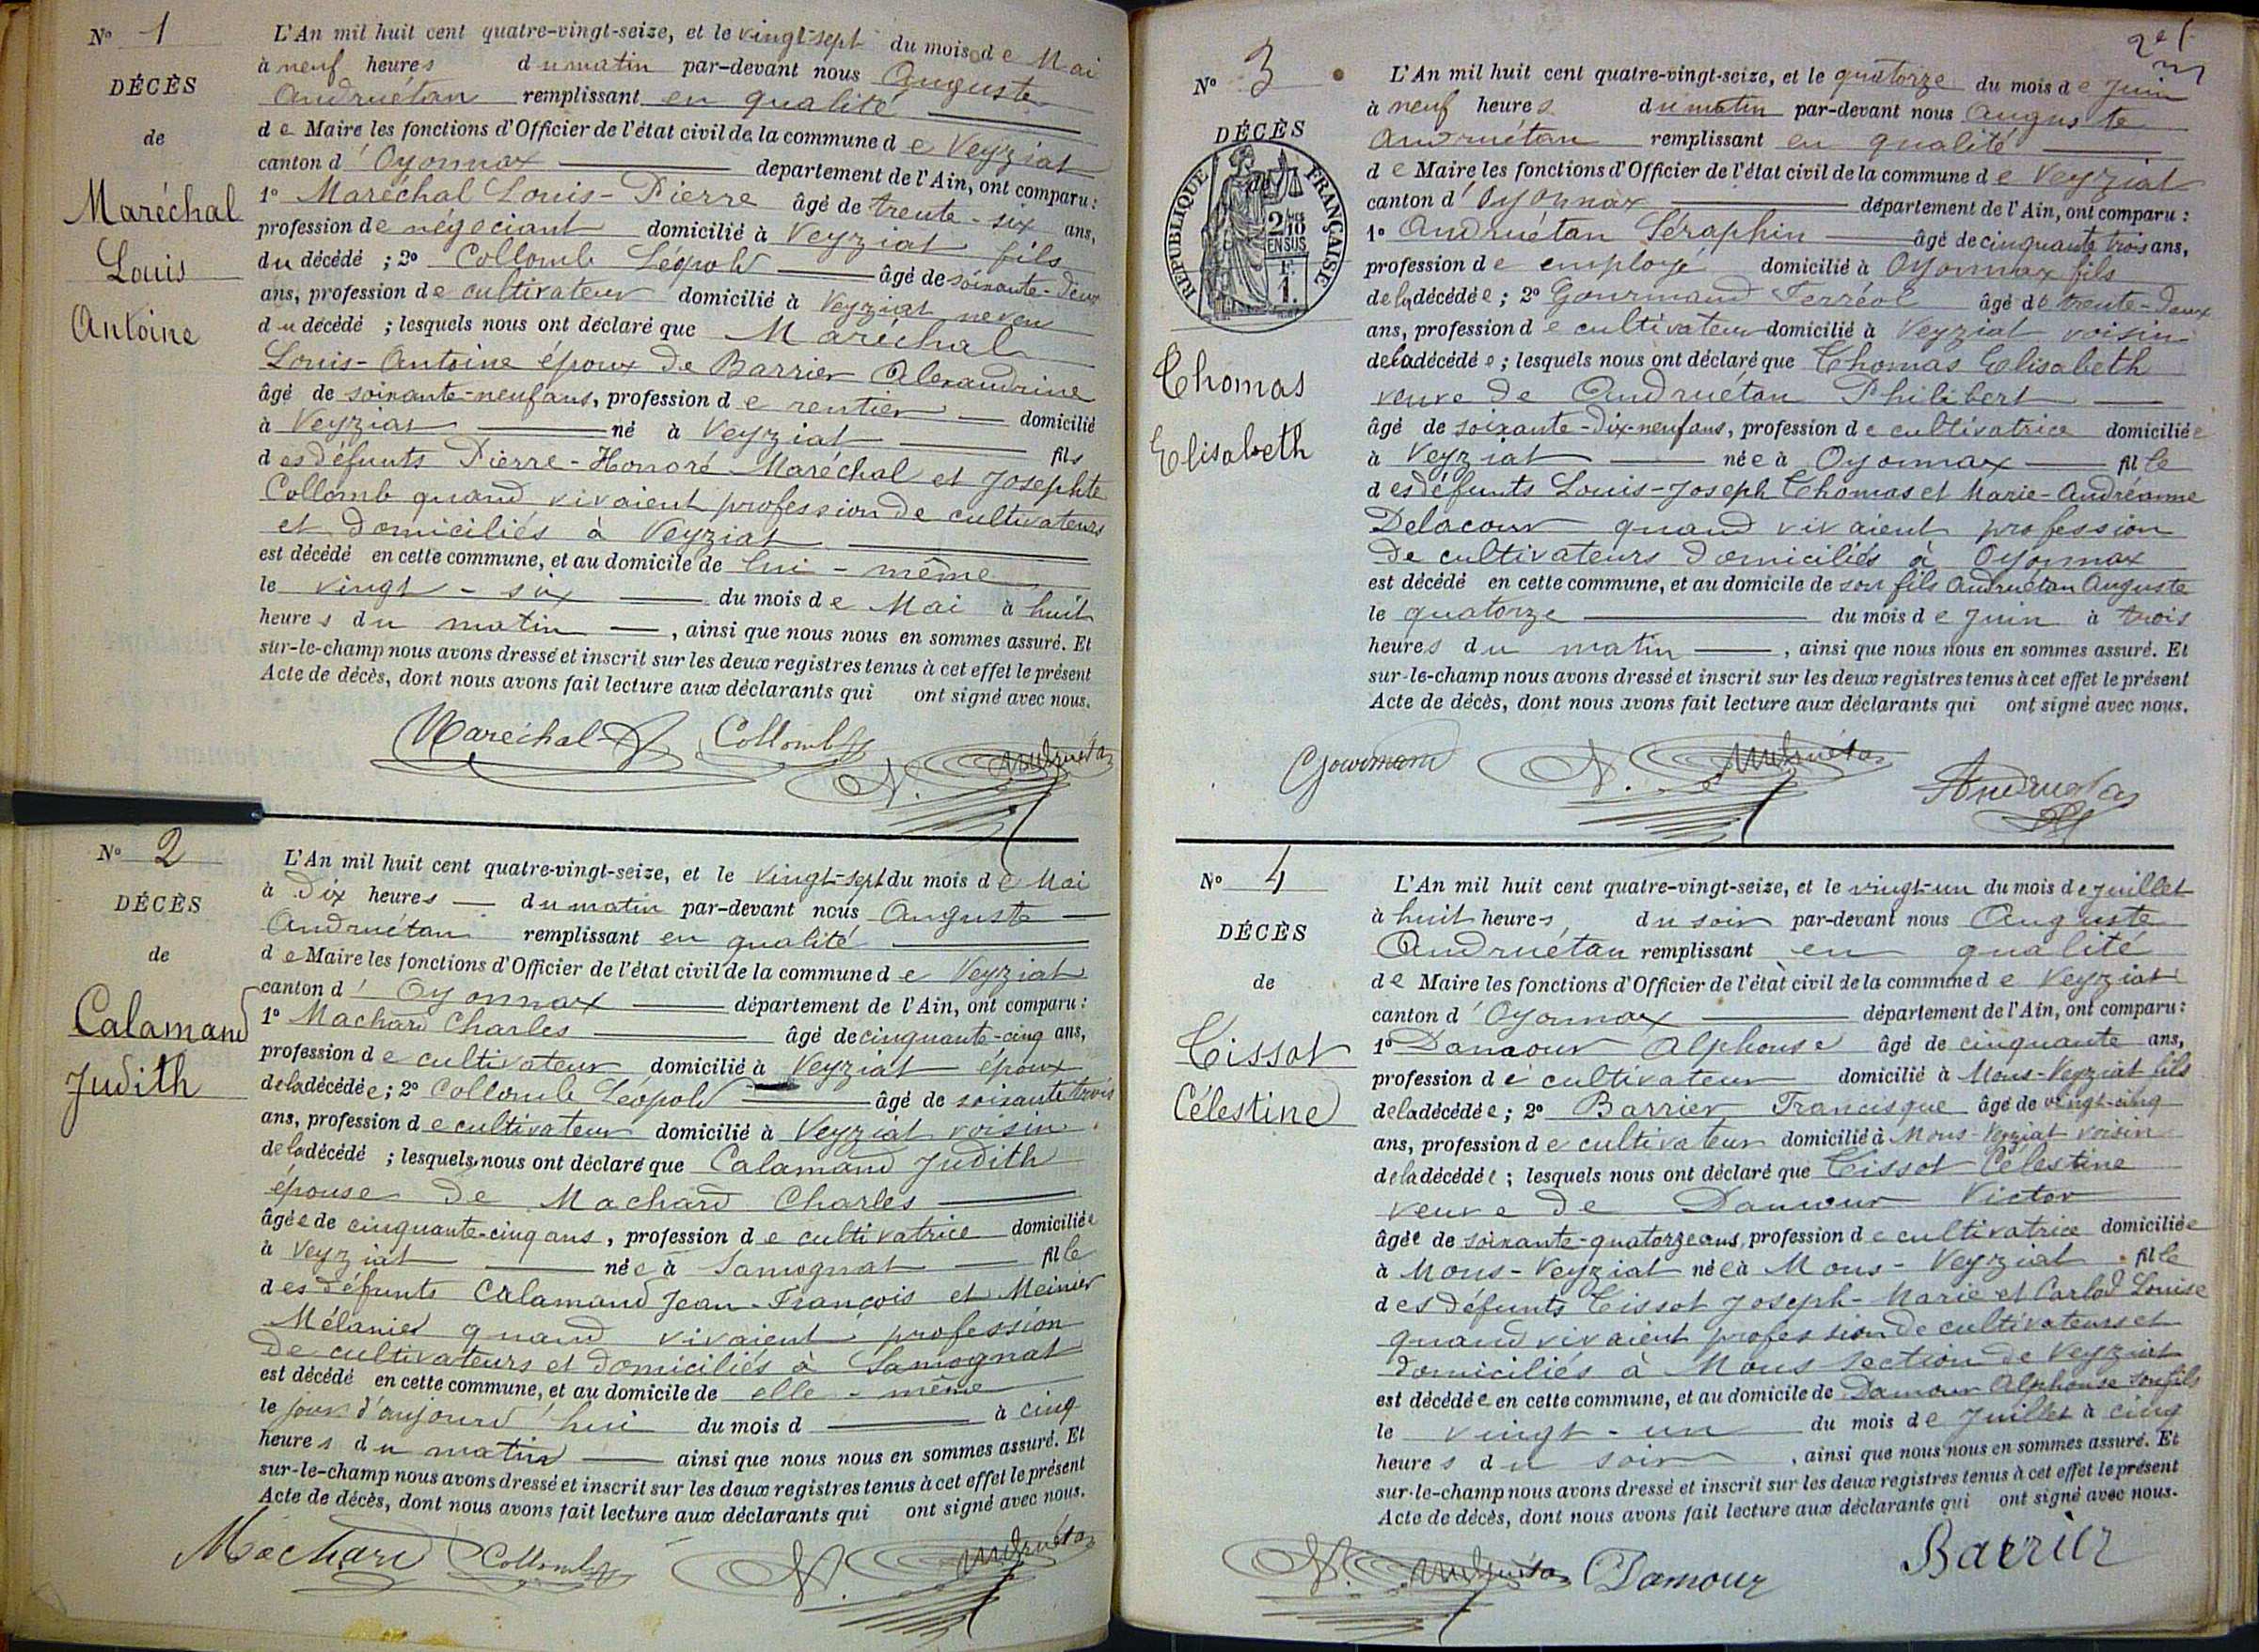 N° 1
DÉCÈS
de
Maréchal
Louis
Antoine
L'An mil huit cent quatre-vingt-seize, et le vingt-sept du mois de Mai
à neuf heures du matin par-devant nous Auguste
Andruétan remplissant en qualité
de Maire les fonctions d'Officier de l'état civil de la commune de Veyziat
canton d'Oyonnax département de l'Ain, ont comparu :
1° Maréchal Louis-Pierre âgé de trente-six ans,
profession de négociant domicilié à Veyziat fils
du décédé ; 2° Collomb Léopold âgé de soixante-deux
ans, profession de cultivateur domicilié à Veyziat neveu
du décédé ; lesquels nous ont déclaré que Maréchal
Louis-Antoine époux de Barrier Alexandrine
âgé de soixante-neuf ans, profession de rentier domicilié
à Veyziat né à Veyziat fils
des défunts Pierre-Honoré Maréchal et Josephte
Collomb quand vivaient profession de cultivateurs
et domiciliés à Veyziat
est décédé en cette commune, et au domicile de lui-même
le vingt-six du mois de Mai à huit
heures du matin, ainsi que nous nous en sommes assuré. Et
sur-le-champ nous avons dressé et inscrit sur les deux registres tenus à cet effet le présent
Acte de décès, dont nous avons fait lecture aux déclarants qui ont signé avec nous.
Maréchal Collomb A. Andruétan
N° 2
DÉCÈS
de
Calamand
Judith
L'An mil huit cent quatre-vingt-seize, et le vingt-sept du mois de Mai
à Dix heures du matin par-devant nous Auguste
Andruétan remplissant en qualité
de Maire les fonctions d'Officier de l'état civil de la commune de Veyziat
canton d'Oyonnax département de l'Ain, ont comparu :
1° Machard Charles âgé de cinquante-cinq ans,
profession de cultivateur domicilié à Veyziat époux
de la décédée ; 2° Collomb Léopold âgé de soixante trois
ans, profession de cultivateur domicilié à Veyziat voisin
de la décédé ; lesquels nous ont déclaré que Calamand Judith
épouse de Machard Charles
âgée de cinquante-cinq ans, profession de cultivatrice domiciliée
à Veyziat née à Samognat fille
des défunts Calamand Jean-François et Meinier
Mélanie quand vivaient profession
de cultivateurs et domiciliés à Samognat
est décédé en cette commune, et au domicile de elle-même
le jour d'aujourd'hui du mois d à cinq
heures du matin ainsi que nous nous en sommes assuré. Et
sur-le-champ nous avons dressé et inscrit sur les deux registres tenus à cet effet le présent
Acte de décès, dont nous avons fait lecture aux déclarants qui ont signé avec nous.
Machard Collomb A. Andruétan
N° 3
DÉCÈS
de
RÉPUBLIQUE FRANÇAISE
2/10 EN SUS
F. 1.
Thomas
Elisabeth
L'An mil huit cent quatre-vingt-seize, et le quatorze du mois de Juin
à neuf heures du matin par-devant nous Auguste
Andruétan remplissant en qualité
de Maire les fonctions d'Officier de l'état civil de la commune de Veyziat
canton d'Oyonnax département de l'Ain, ont comparu :
1° Andruétan Séraphin âgé de cinquante trois ans,
profession de employé domicilié à Oyonnax fils
de la décédée ; 2° Gourmand Ferréol âgé de trente-deux
ans, profession de cultivateur domicilié à Veyziat voisin
de la décédée ; lesquels nous ont déclaré que Thomas Elisabeth
veuve de Andruetan Philibert
âgé de soixante-dix-neuf ans, profession de cultivatrice domiciliée
à Veyziat née à Oyonnax fille
des défunts Louis-Joseph Thomas et Marie-Andréanne
Delacour quand vivaient profession
de cultivateurs domiciliés à Oyonnax
est décédé en cette commune, et au domicile de son fils Andruétan Auguste
le quatorze du mois de Juin à trois
heures du matin, ainsi que nous nous en sommes assuré. Et
sur-le-champ nous avons dressé et inscrit sur les deux registres tenus à cet effet le présent
Acte de décès, dont nous avons fait lecture aux déclarants qui ont signé avec nous.
Gourmand A. Andruétan Andruétan
N° 4
DÉCÈS
de
Tissot
Célestine
L'An mil huit cent quatre-vingt-seize, et le vingt-un du mois de Juillet
à huit heures du soir par-devant nous Auguste
Andruétan remplissant en qualité
de Maire les fonctions d'Officier de l'état civil de la commune de Veyziat
canton d'Oyonnax département de l'Ain, ont comparu :
1° Damour Alphonse âgé de cinquante ans,
profession de cultivateur domicilié à Mons-Veyziat fils
de la décédée ; 2° Barrier Francisque âgé de vingt-cinq
ans, profession de cultivateur domicilié à Mons-Veyziat voisin
de la décédée ; lesquels nous ont déclaré que Tissot Célestine
veuve de Damour Victor
âgée de soixante-quatorze ans, profession de cultivatrice domiciliée
à Mons-Veyziat née à Mons-Veyziat fille
des défunts Tissot Joseph-Marie et Carlod Louise
quand vivaient profession de cultivateurs et
domiciliés à Mons section de Veyziat
est décédée en cette commune, et au domicile de Damour Alphonse son fils
le vingt-un du mois de Juillet à cinq
heures du soir, ainsi que nous nous en sommes assuré. Et
sur-le-champ nous avons dressé et inscrit sur les deux registres tenus à cet effet le présent
Acte de décès, dont nous avons fait lecture aux déclarants qui ont signé avec nous.
A. Andruétan Damour Barrier